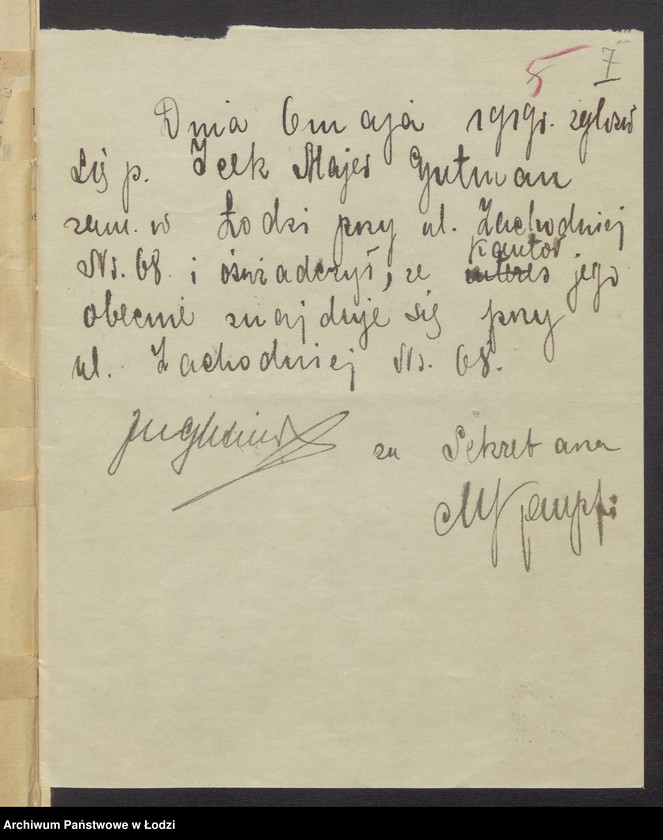 5 7
Dnia 6 maja 1919r. zgłosił
się p. Icek Majer Gutman
zam. w Łodzi przy ul. Zachodniej
kantor
Nr. 68 i oświadczył, że interes jego
obecnie znajduje się przy
ul. Zachodniej Nr. 68.
za Sekretarza
Archiwum Państwowe w Łodzi